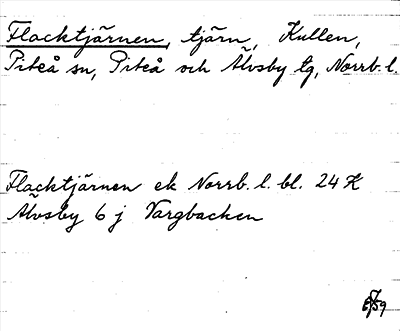 Flacktjärnen, tjärn, Kullen,
Piteå sn, Piteå och Älvsby tg, Norrb. l.
Flacktjärnen ek Norrb. l. bl. 24 K
Älvsby 6 j Vargbacken